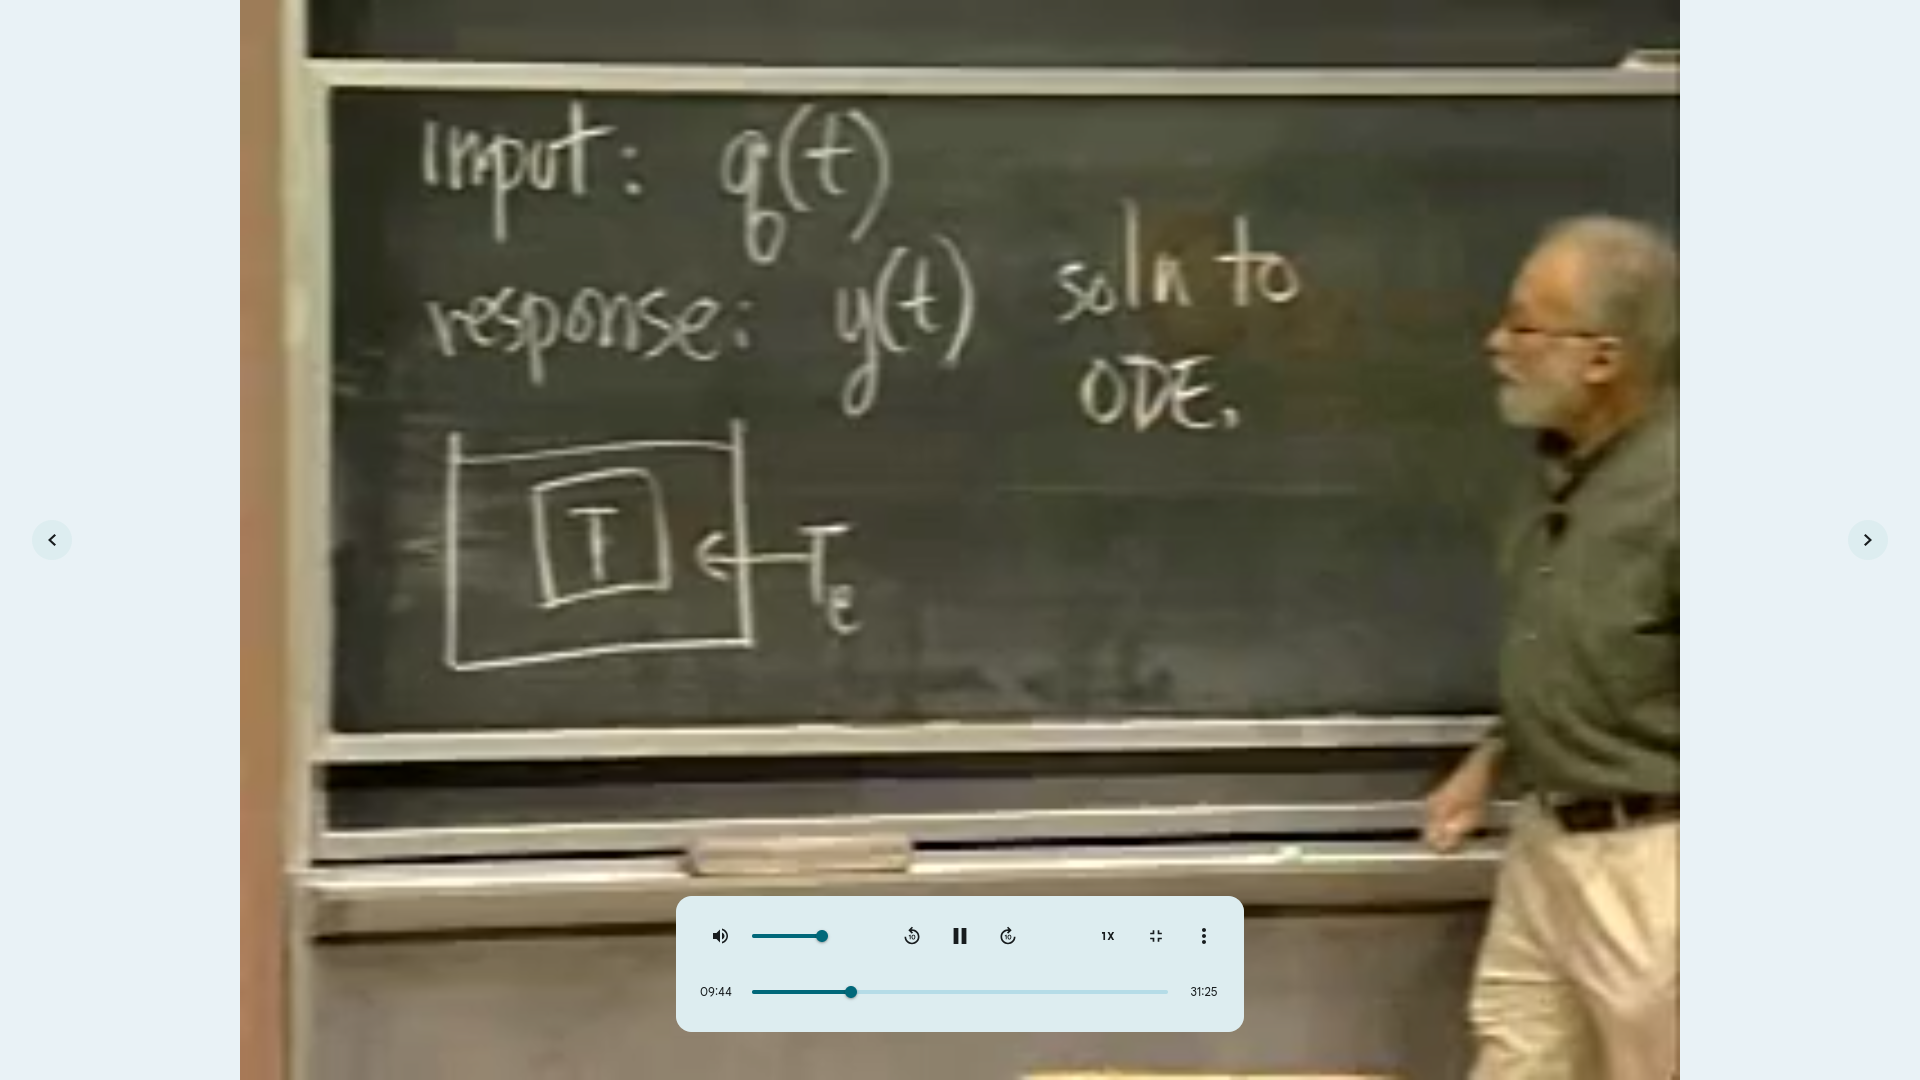 input: q(t)
response: y(t) soln to
ODE.
T
Te
10
10
1X
09:44
31:25